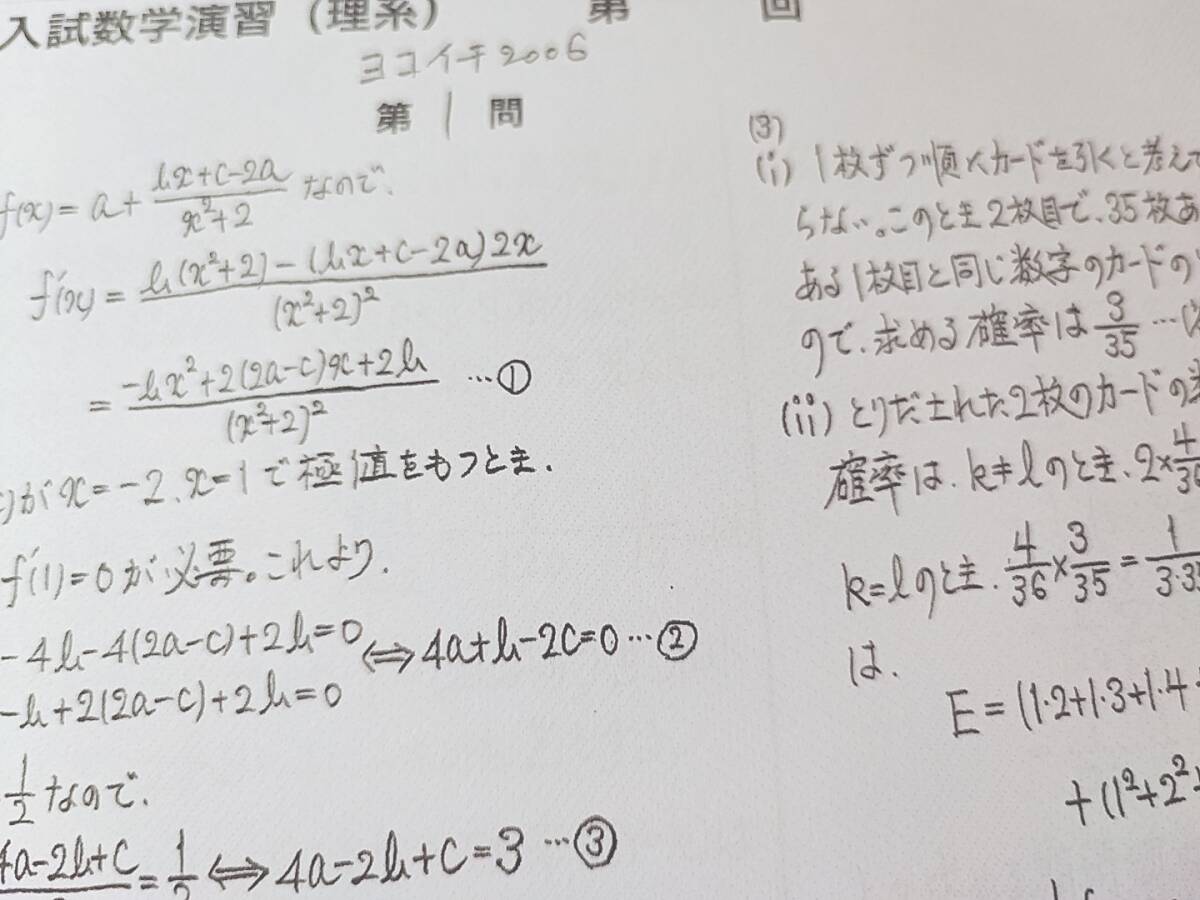 入試数学演習（理系）　第　回
ヨコイチ2006
第 1 問
f(x) = a + \frac{bx+c-2a}{x^2+2} なので、
f'(x) = \frac{b(x^2+2)-(bx+c-2a)2x}{(x^2+2)^2}
= \frac{-bx^2+2(2a-c)x+2b}{(x^2+2)^2} …①
)が x=-2、x=1で極値をもつとき、
f'(1)=0が必要。これより、
-4b-4(2a-c)+2b=0 ⇔ 4a+b-2c=0 …②
-b+2(2a-c)+2b=0
\frac{1}{2} なので、
\frac{4a-2b+c}{} = \frac{1}{2} ⇔ 4a-2b+c=3 …③
(3)
(i) 1枚ずつ順にカードを引くと考えて
らない。このとき2枚目で、35枚あ
ある1枚目と同じ数字のカードの
ので、求める確率は \frac{3}{35} …(
(ii) とりだされた2枚のカードの
確率は、k≠lのとき、2×\frac{4}{36}
k=lのとき、\frac{4}{36}×\frac{3}{35}=\frac{1}{3·35}
は、
E=(1·2+1·3+1·4+
+(1^2+2^2+